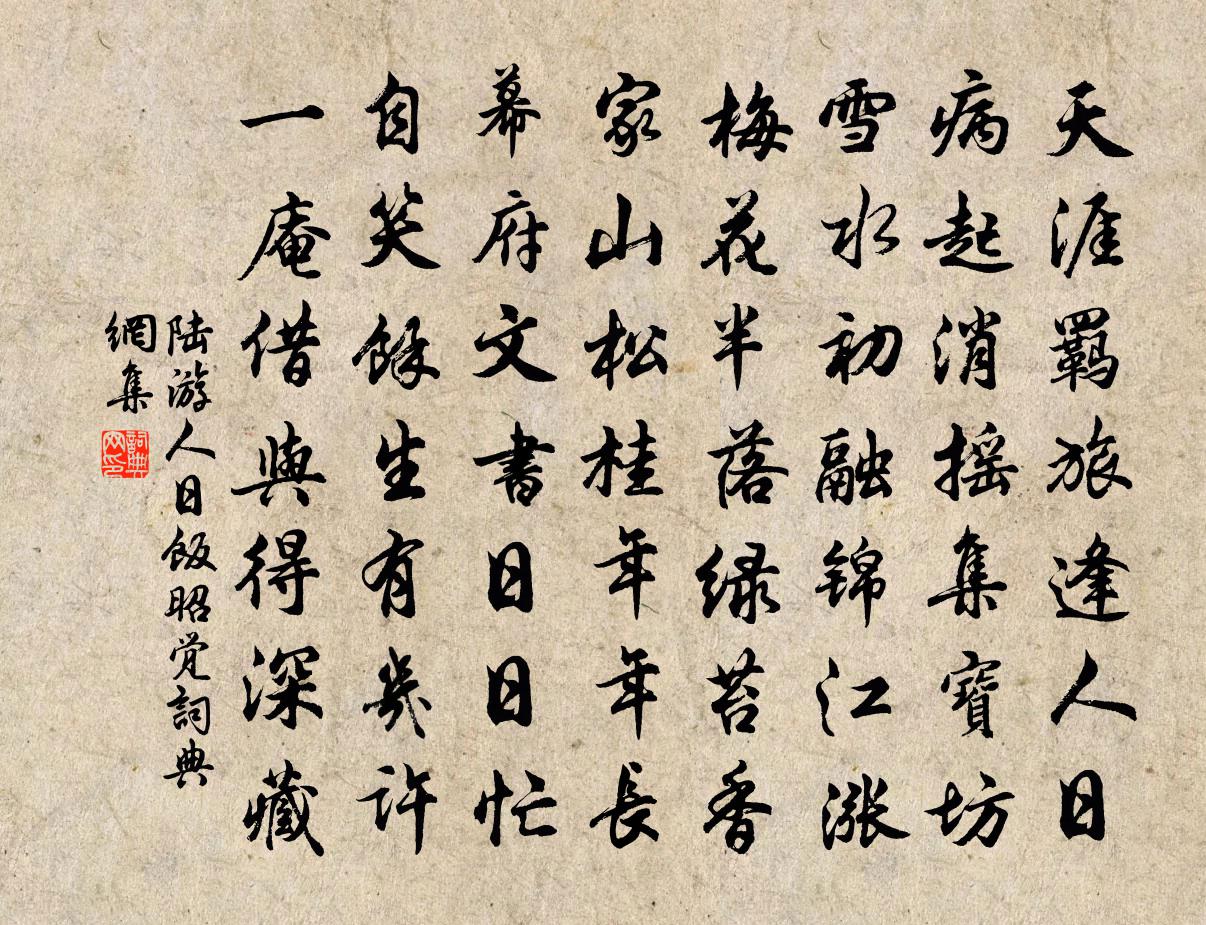 天涯羈旅逢人日
病起消摇集寶坊
雪水初融锦江涨
梅花半落緑苔香
家山松桂年年長
幕府文書日日忙
自笑餘生有幾許
一庵借與得深藏
陆游人日飯昭觉詞典
網集
詞典
网印